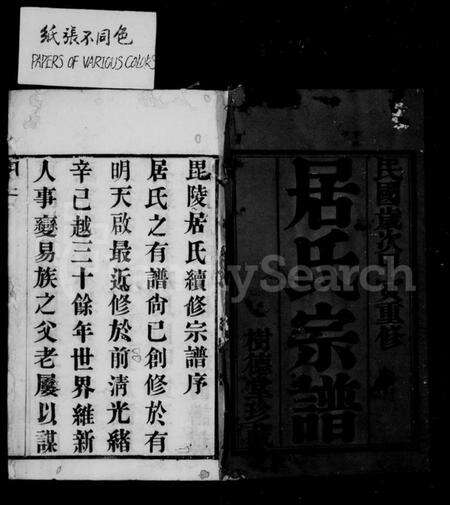 紙張不同色
PAPERS OF VARIOUS COLORS
民國歲次辛巳重修
居氏宗譜
樹德堂珍藏
毘陵居氏續修宗譜序
居氏之有譜尚已創修於有
明天啟最近修於前清光緒
辛己越三十餘年世界維新
人事變易族之父老屢以謀
FamilySearch